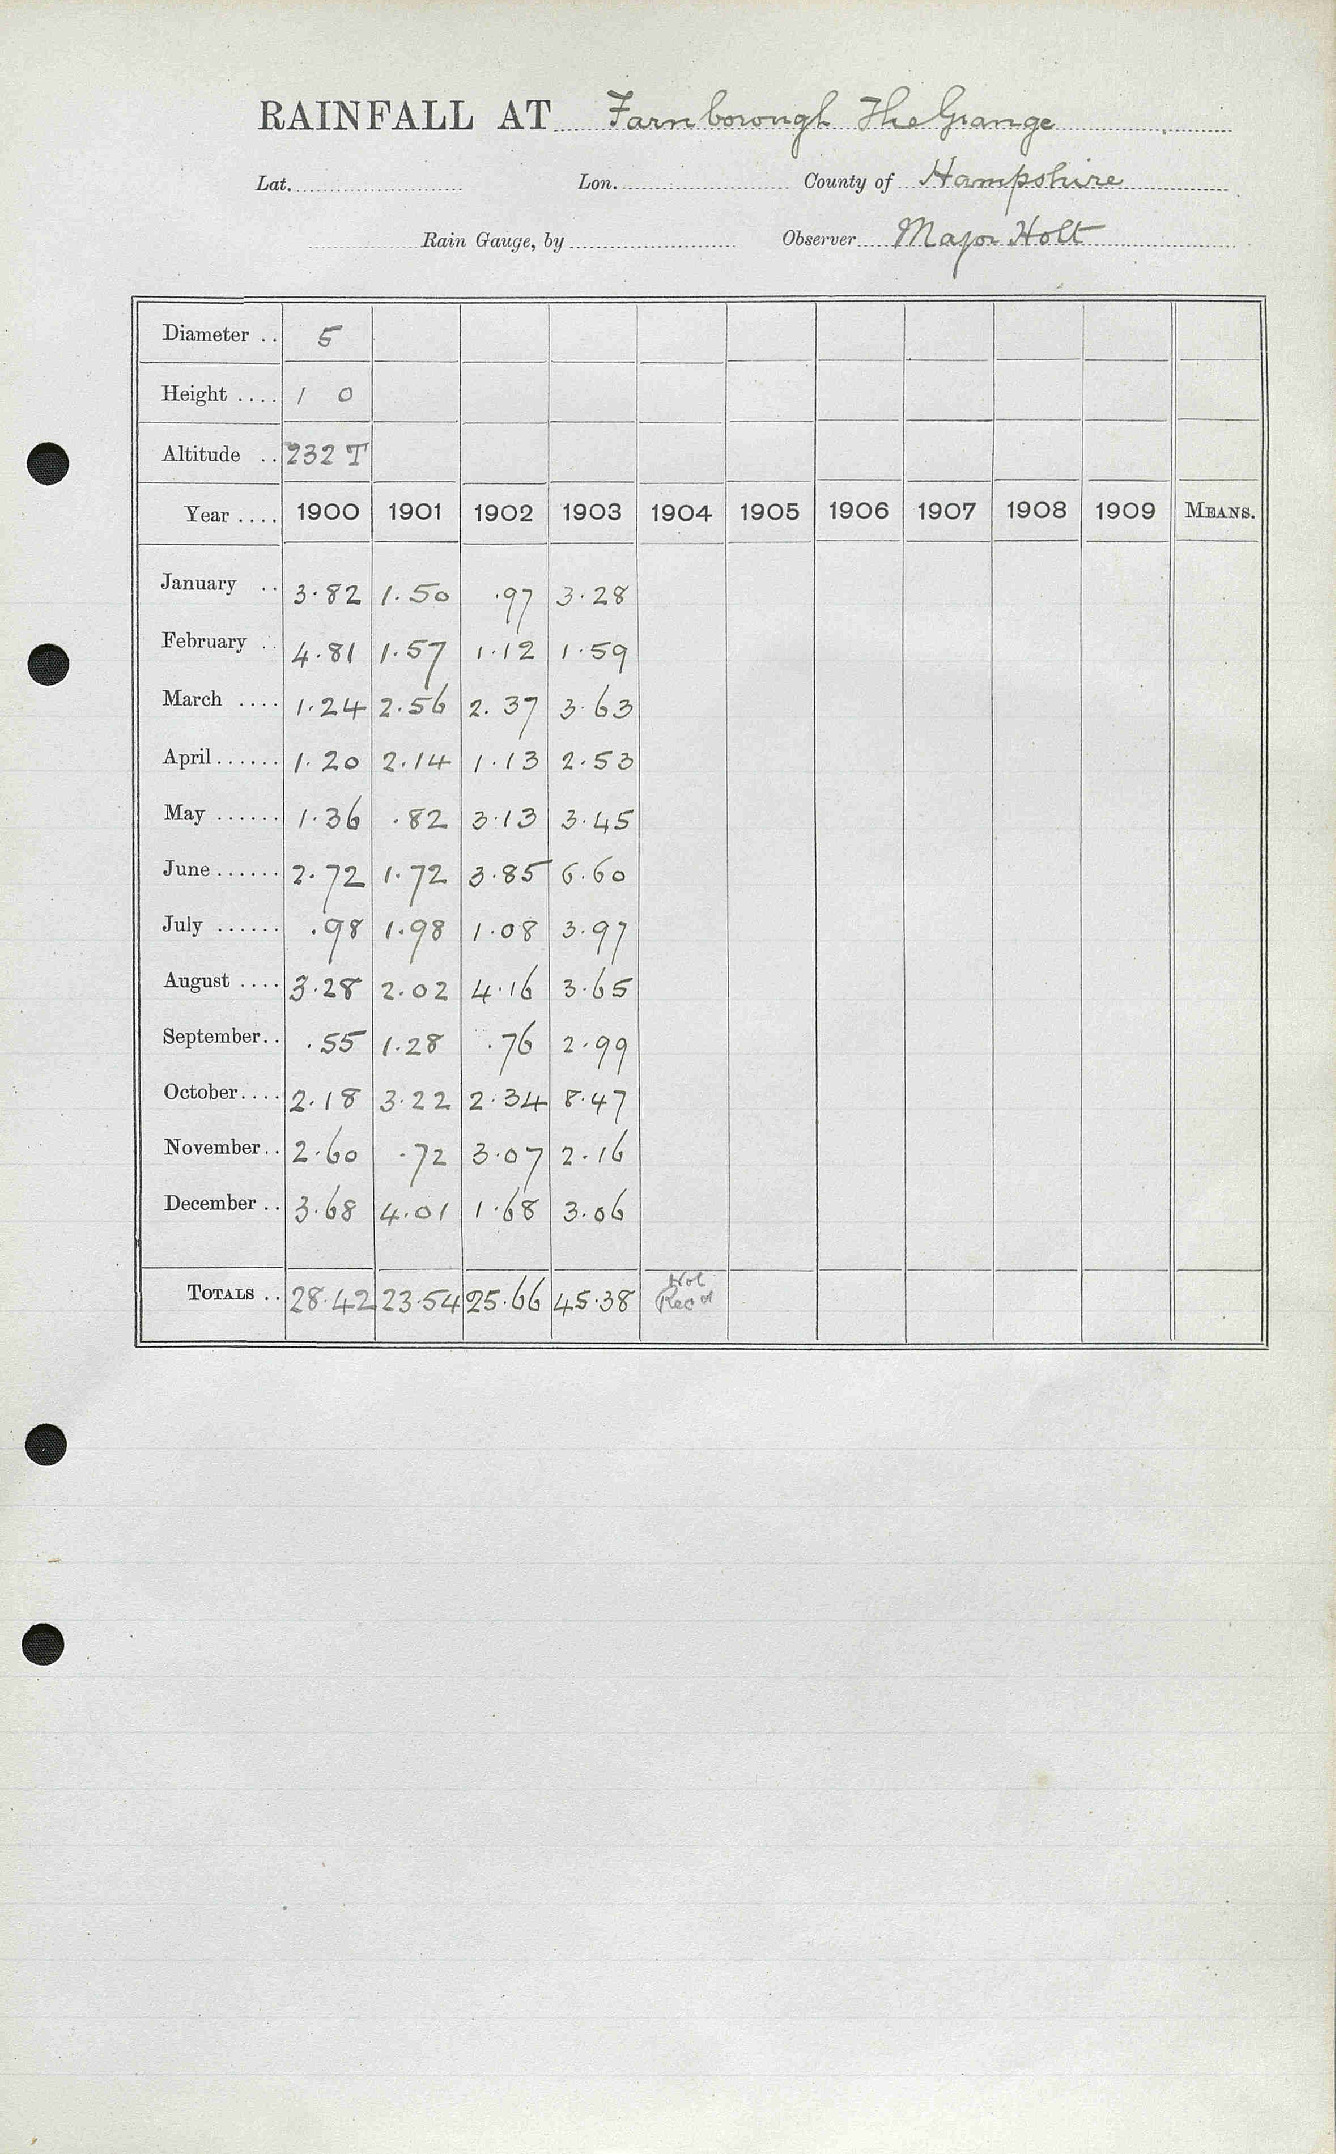 RAINFALL AT Farnborough The Grange
Lat. Lon. County of Hampshire
Rain Gauge, by Observer Major Holt
Diameter .. 5
Height .... 1 0
Altitude .. 232 T
Year .... 1900 1901 1902 1903 1904 1905 1906 1907 1908 1909 MEANS.
January .. 3.82 1.50 .97 3.28
February .. 4.81 1.57 1.12 1.59
March .... 1.24 2.56 2.37 3.63
April ...... 1.20 2.14 1.13 2.53
May ...... 1.36 .82 3.13 3.45
June ...... 2.72 1.72 3.85 6.60
July ...... .98 1.98 1.08 3.97
August .... 3.28 2.02 4.16 3.65
September.. .55 1.28 .76 2.99
October.... 2.18 3.22 2.34 8.47
November.. 2.60 .72 3.07 2.16
December .. 3.68 4.01 1.68 3.06
TOTALS .. 28.42 23.54 25.66 45.38 Not
Recd